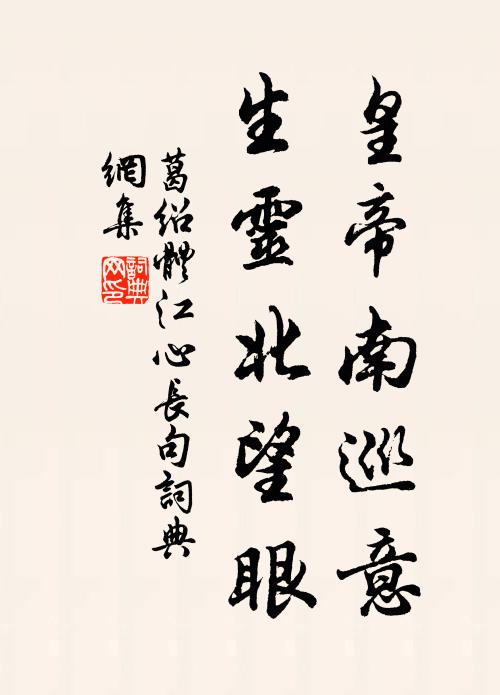 皇帝南巡意
生靈北望眼
葛紹體江心長句詞典
網集
詞典網印